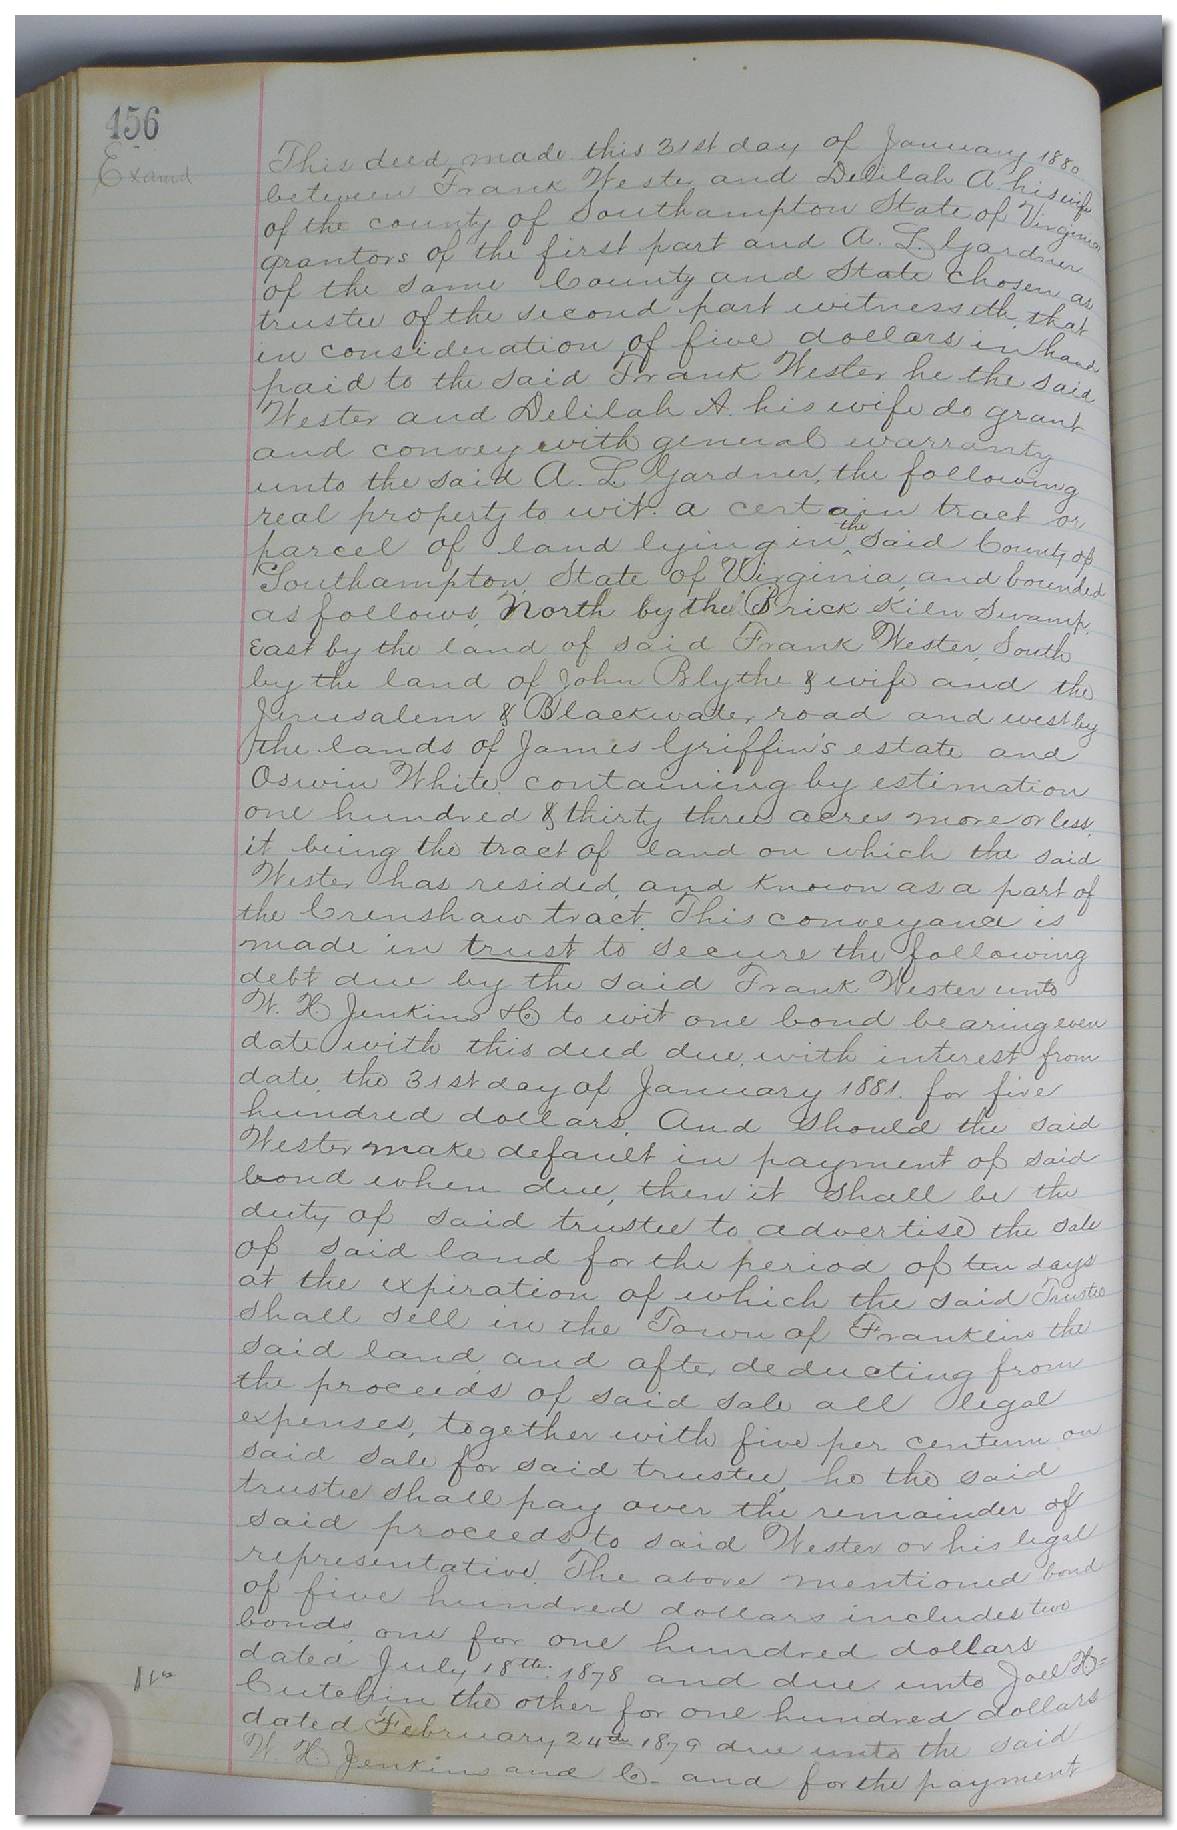 456
Examd
This deed made this 31st day of January 1880
between Frank Wester and Delilah A his wife
of the county of Southampton State of Virginia
grantors of the first part and A. L. Gardner
of the same County and State chosen as
trustee of the second part witnesseth that
in consideration of five dollars in hand
paid to the said Frank Wester he the said
Wester and Delilah A. his wife do grant
and convey with general warranty
unto the said A. L. Gardner, the following
real property to wit. a certain tract or
parcel of land lying in the said County of
Southampton, State of Virginia, and bounded
as follows, North by the Brick Kiln Swamp,
East by the land of said Frank Wester, South
by the land of John Blythe & wife and the
Jerusalem & Blackwater road and west by
the lands of James Griffin's estate and
Oswin White. containing by estimation
one hundred & thirty three acres more or less.
it being the tract of land on which the said
Wester has resided, and known as a part of
the Crenshaw tract. This conveyance is
made in trust to secure the following
debt due by the said Frank Wester unto
W. H. Jenkins & Co to wit one bond bearing even
date with this deed due, with interest from
date, the 31st day of January 1881. for five
hundred dollars. And should the said
Wester make default in payment of said
bond when due, then it shall be the
duty of said trustee to advertise the sale
of said land for the period of ten days
at the expiration of which the said Trustee
shall sell in the Town of Franklin the
said land, and after deducting from
the proceeds of said sale all legal
expenses, together with five per centum on
said sale for said trustee, he the said
trustee shall pay over the remainder of
said proceeds to said Wester or his legal
representative. The above mentioned bond
of five hundred dollars includes two
bonds, one for one hundred dollars
dated July 18th. 1878 and due unto Joel H=
Cutchin the other for one hundred dollars
dated February 24th 1879 due unto the said
W. H. Jenkins and C- and for the payment